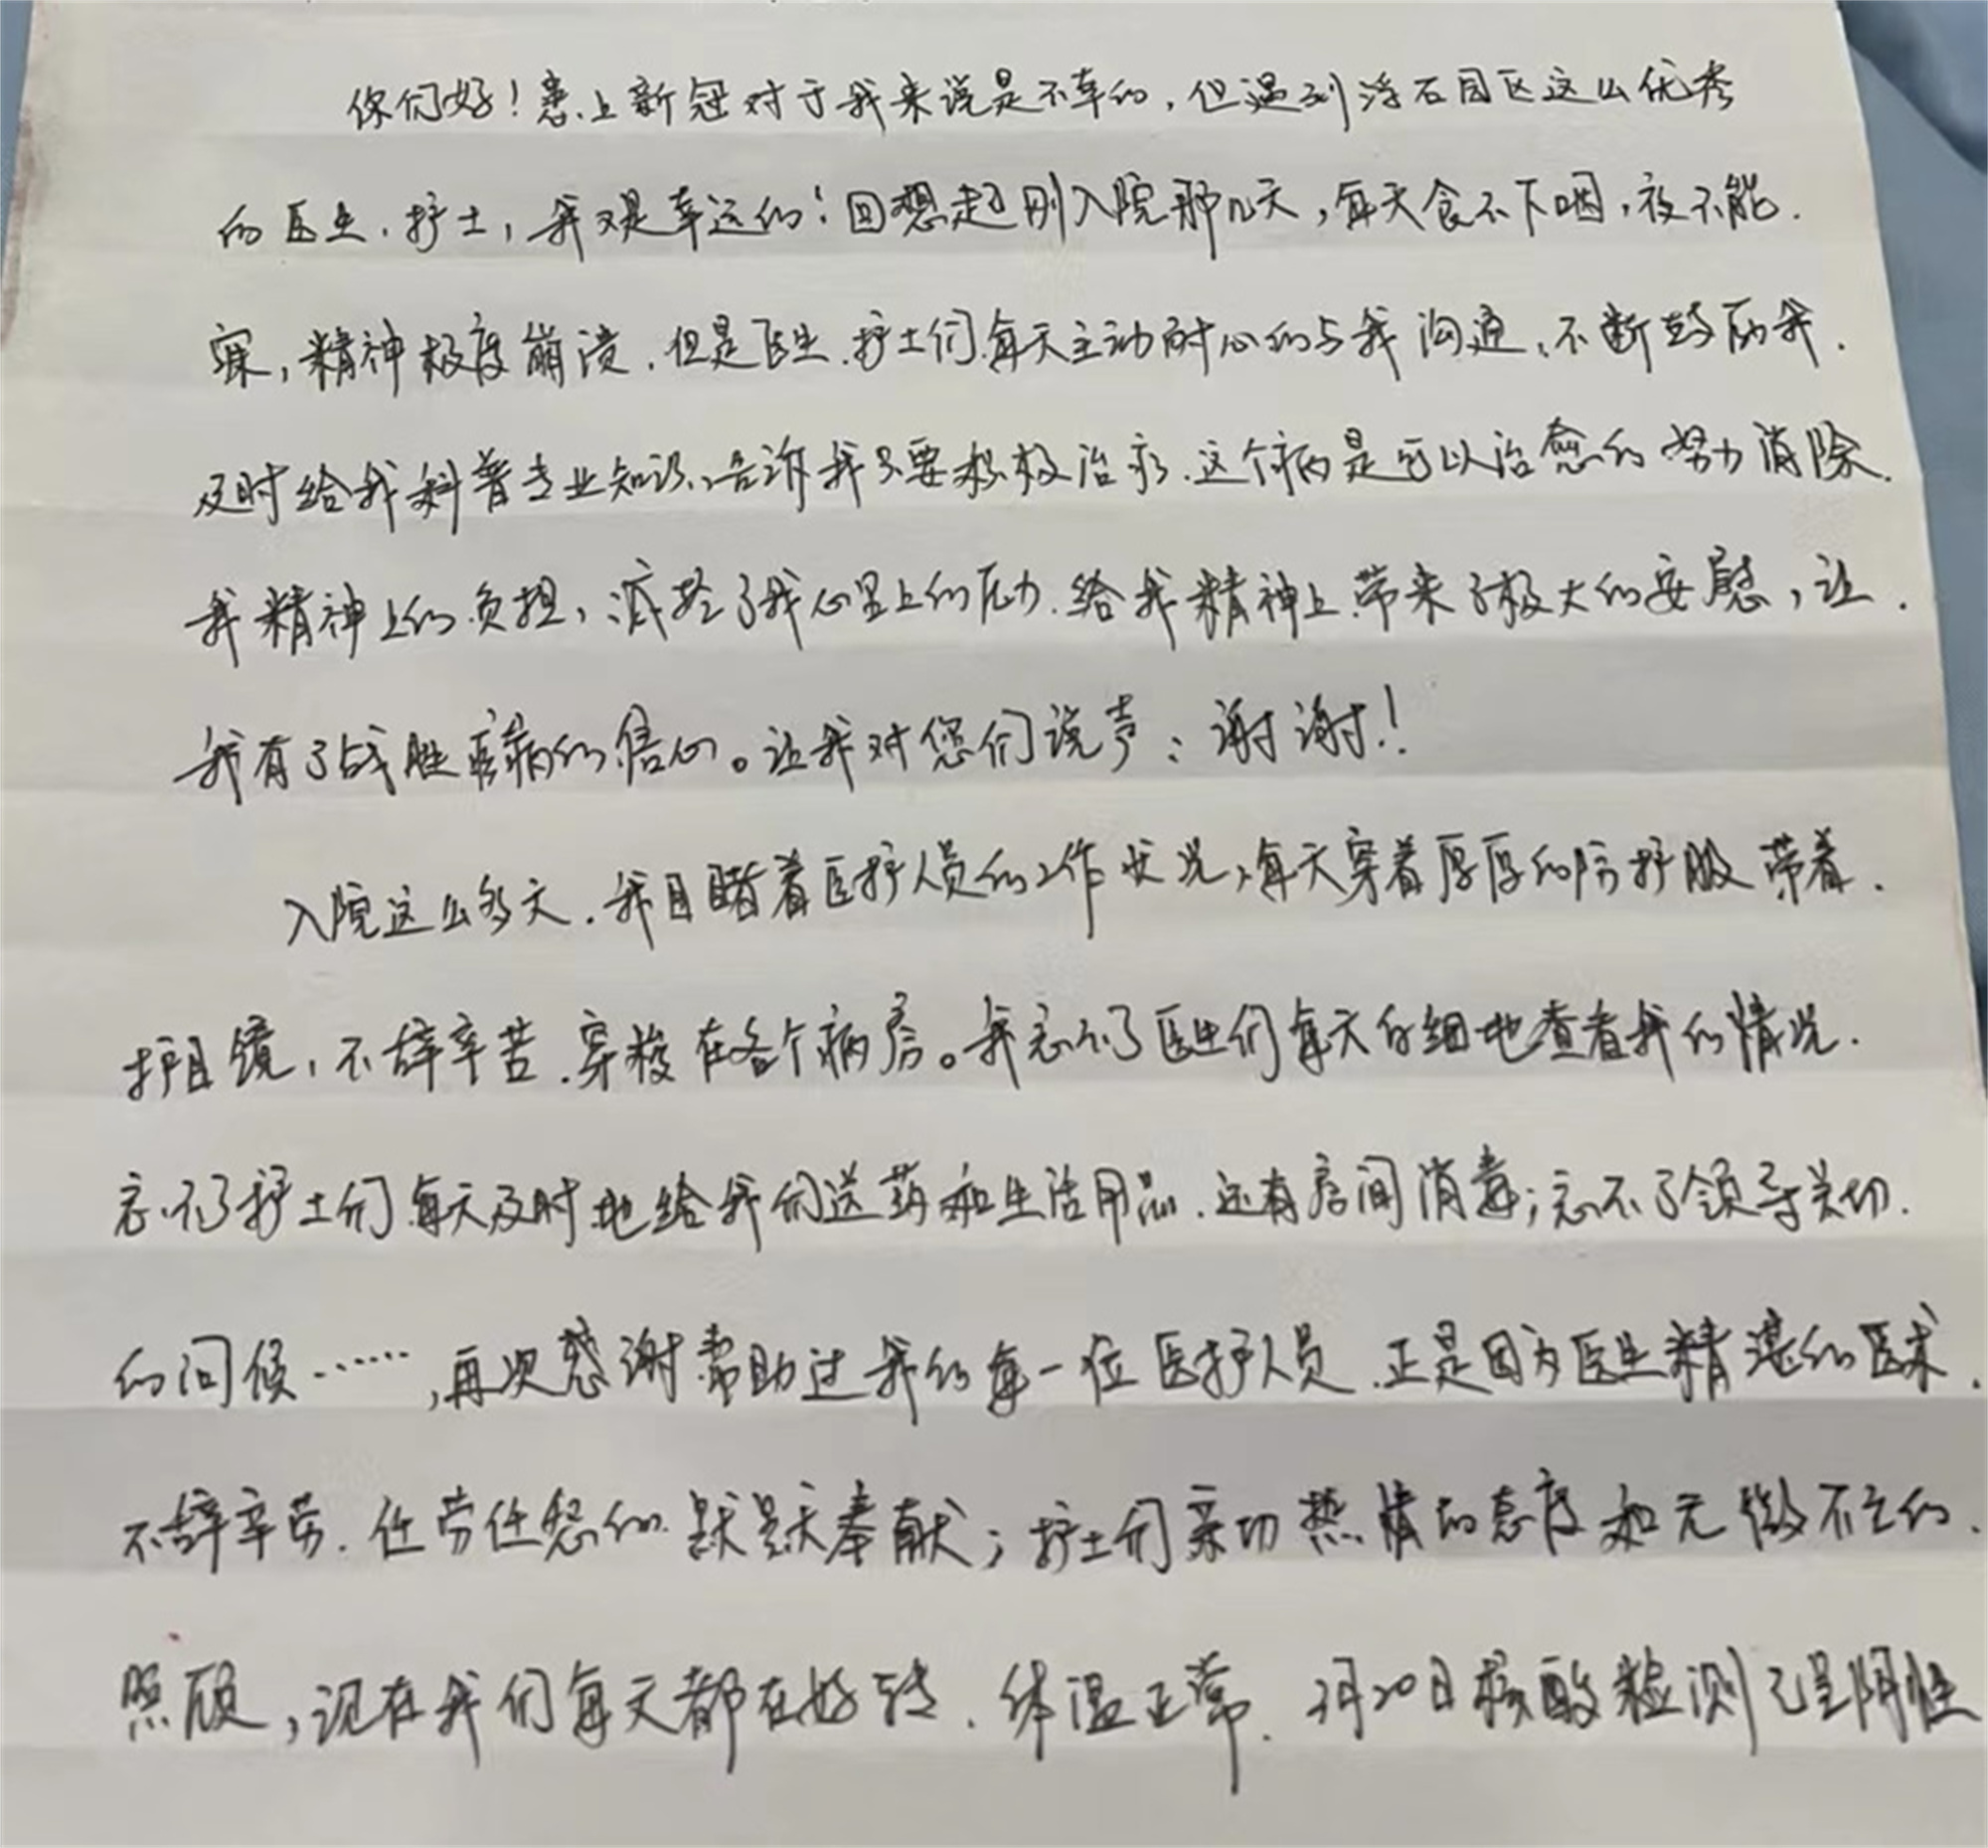 你们好！患上新冠对于我来说是不幸的，但遇到浮石园区这么优秀
的医生、护士，我又是幸运的！回想起刚入院那几天，每天食不下咽，夜不能
寐，精神极度崩溃，但是医生、护士们每天主动耐心的与我沟通，不断鼓励我，
及时给我科普专业知识，告诉我只要积极治疗，这个病是可以治愈的，努力消除
我精神上的负担，减轻了我心里上的压力，给我精神上带来了极大的安慰，让
我有了战胜疾病的信心。让我对您们说声：谢谢！
入院这么多天，我目睹着医护人员的工作状况，每天穿着厚厚的防护服，带着
护目镜，不辞辛苦，穿梭在各个病房。我忘不了医生们每天仔细地查看我的情况，
忘不了护士们每天及时地给我们送药和生活用品，还有房间消毒；忘不了领导关切
的问候……，再次感谢帮助过我的每一位医护人员，正是因为医生精湛的医术，
不辞辛劳，任劳任怨的默默奉献；护士们亲切热情的态度和无微不至的
照顾，现在我们每天都在好转，体温正常，月20日核酸检测已呈阴性